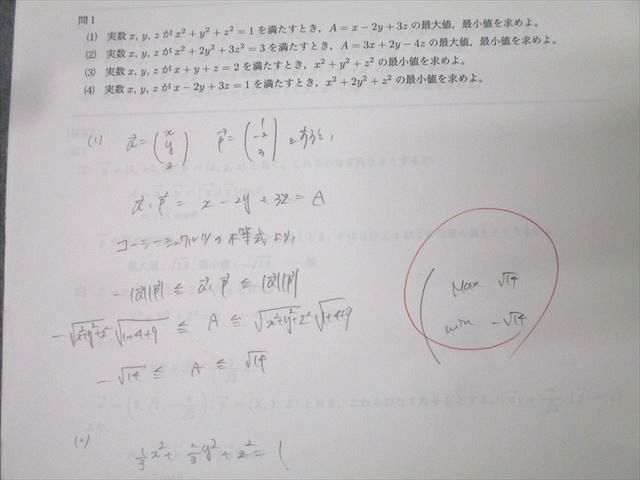 問1
(1) 実数 x, y, z が x² + y² + z² = 1 を満たすとき，A = x − 2y + 3z の最大値，最小値を求めよ。
(2) 実数 x, y, z が x² + 2y² + 3z² = 3 を満たすとき，A = 3x + 2y − 4z の最大値，最小値を求めよ。
(3) 実数 x, y, z が x + y + z = 2 を満たすとき，x² + y² + z² の最小値を求めよ。
(4) 実数 x, y, z が x − 2y + 3z = 1 を満たすとき，x² + 2y² + z² の最小値を求めよ。
(1) = (x y z) p⃗ = (1 -2 3) とすると，
x − 2y + 3z = A
コーシーシュワルツの不等式より，
-√(x²+y²+z²) √(1+4+9) ≦ A ≦ √(x²+y²+z²) √(1+4+9)
-√14 ≦ A ≦ √14
Max √14
min -√14
(2)
1/3 x² + 2/3 y² + z² = 1